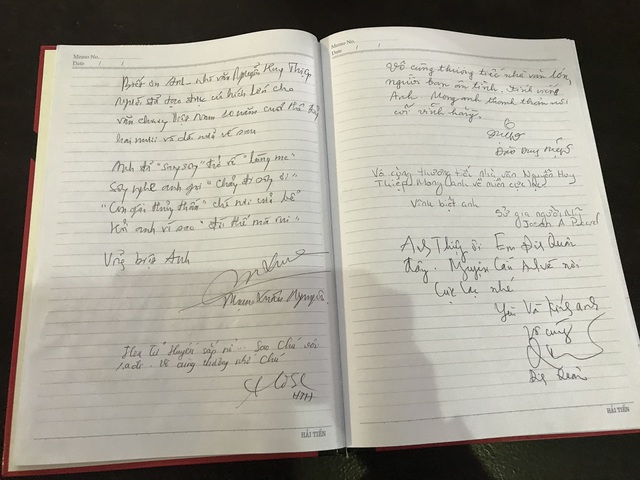 Memo No.
Date / /
Biết ơn Anh nhà văn Nguyễn Huy Thiệp
Người đã tạo được cú hích lớn cho
văn chương Việt Nam 10 năm cuối thế kỷ
hai mươi và dài mãi về sau
Anh đã "sang sông" trở về "làng mẹ"
Sông nghe anh gọi "chảy đi sông ơi"
"Con gái thủy thần" chờ nơi cửa bể
Hỏi anh vì sao "đời thế mà vui"
Vĩnh biệt Anh
Phạm Xuân Nguyên
Sao Chú vội
Vô cùng thương nhớ Chú
HẢI TIẾN
Memo No.
Date / /
Vô cùng thương tiếc nhà văn lớn,
người bạn ân tình, kính mến
Anh. Mong anh thanh thản nơi
cõi vĩnh hằng.
Đào Duy Hiệp
Vô cùng thương tiếc nhà văn Nguyễn Huy
Thiệp Mong anh về miền cực lạc
Vĩnh biệt anh
Sử gia người Mỹ
Anh Thiệp ơi Em
đây. Nguyện cầu Anh về nơi
Cực lạc nhé
Yêu Và kính anh
Vô cùng
HẢI TIẾN